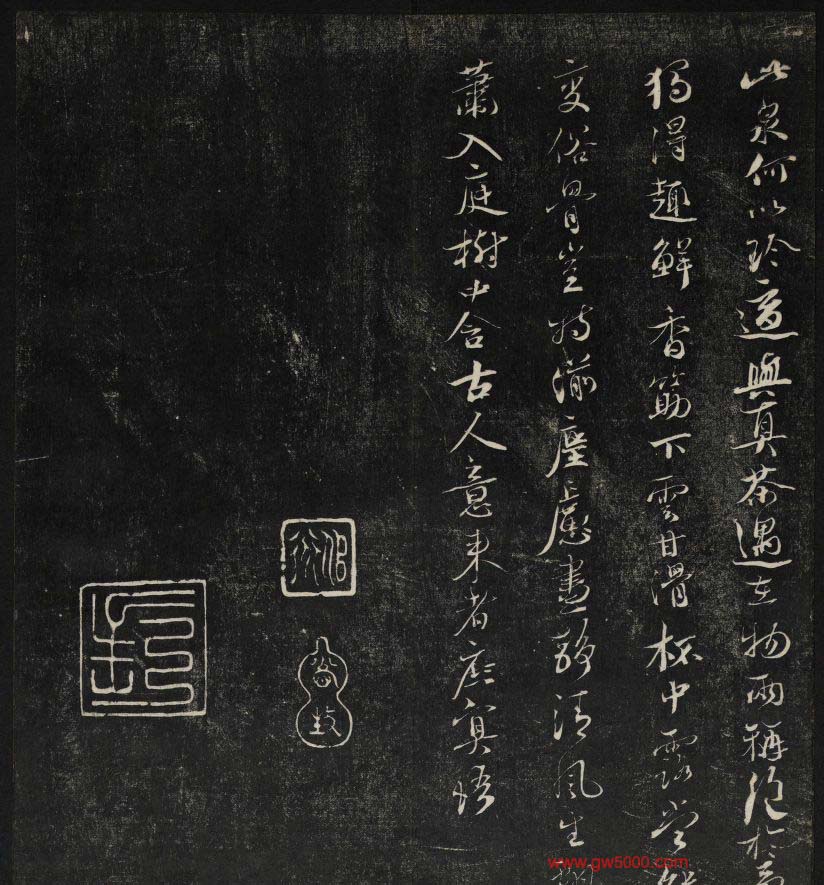 此泉何以珍適與真茶遇在物兩稱絕於予
獨得趣鮮香筯下雲甘滑杯中露當能
變俗骨豈特湔塵慮晝靜清風生飄
蕭入庭樹中含古人意來者庶冥悟
www.gw5000.com